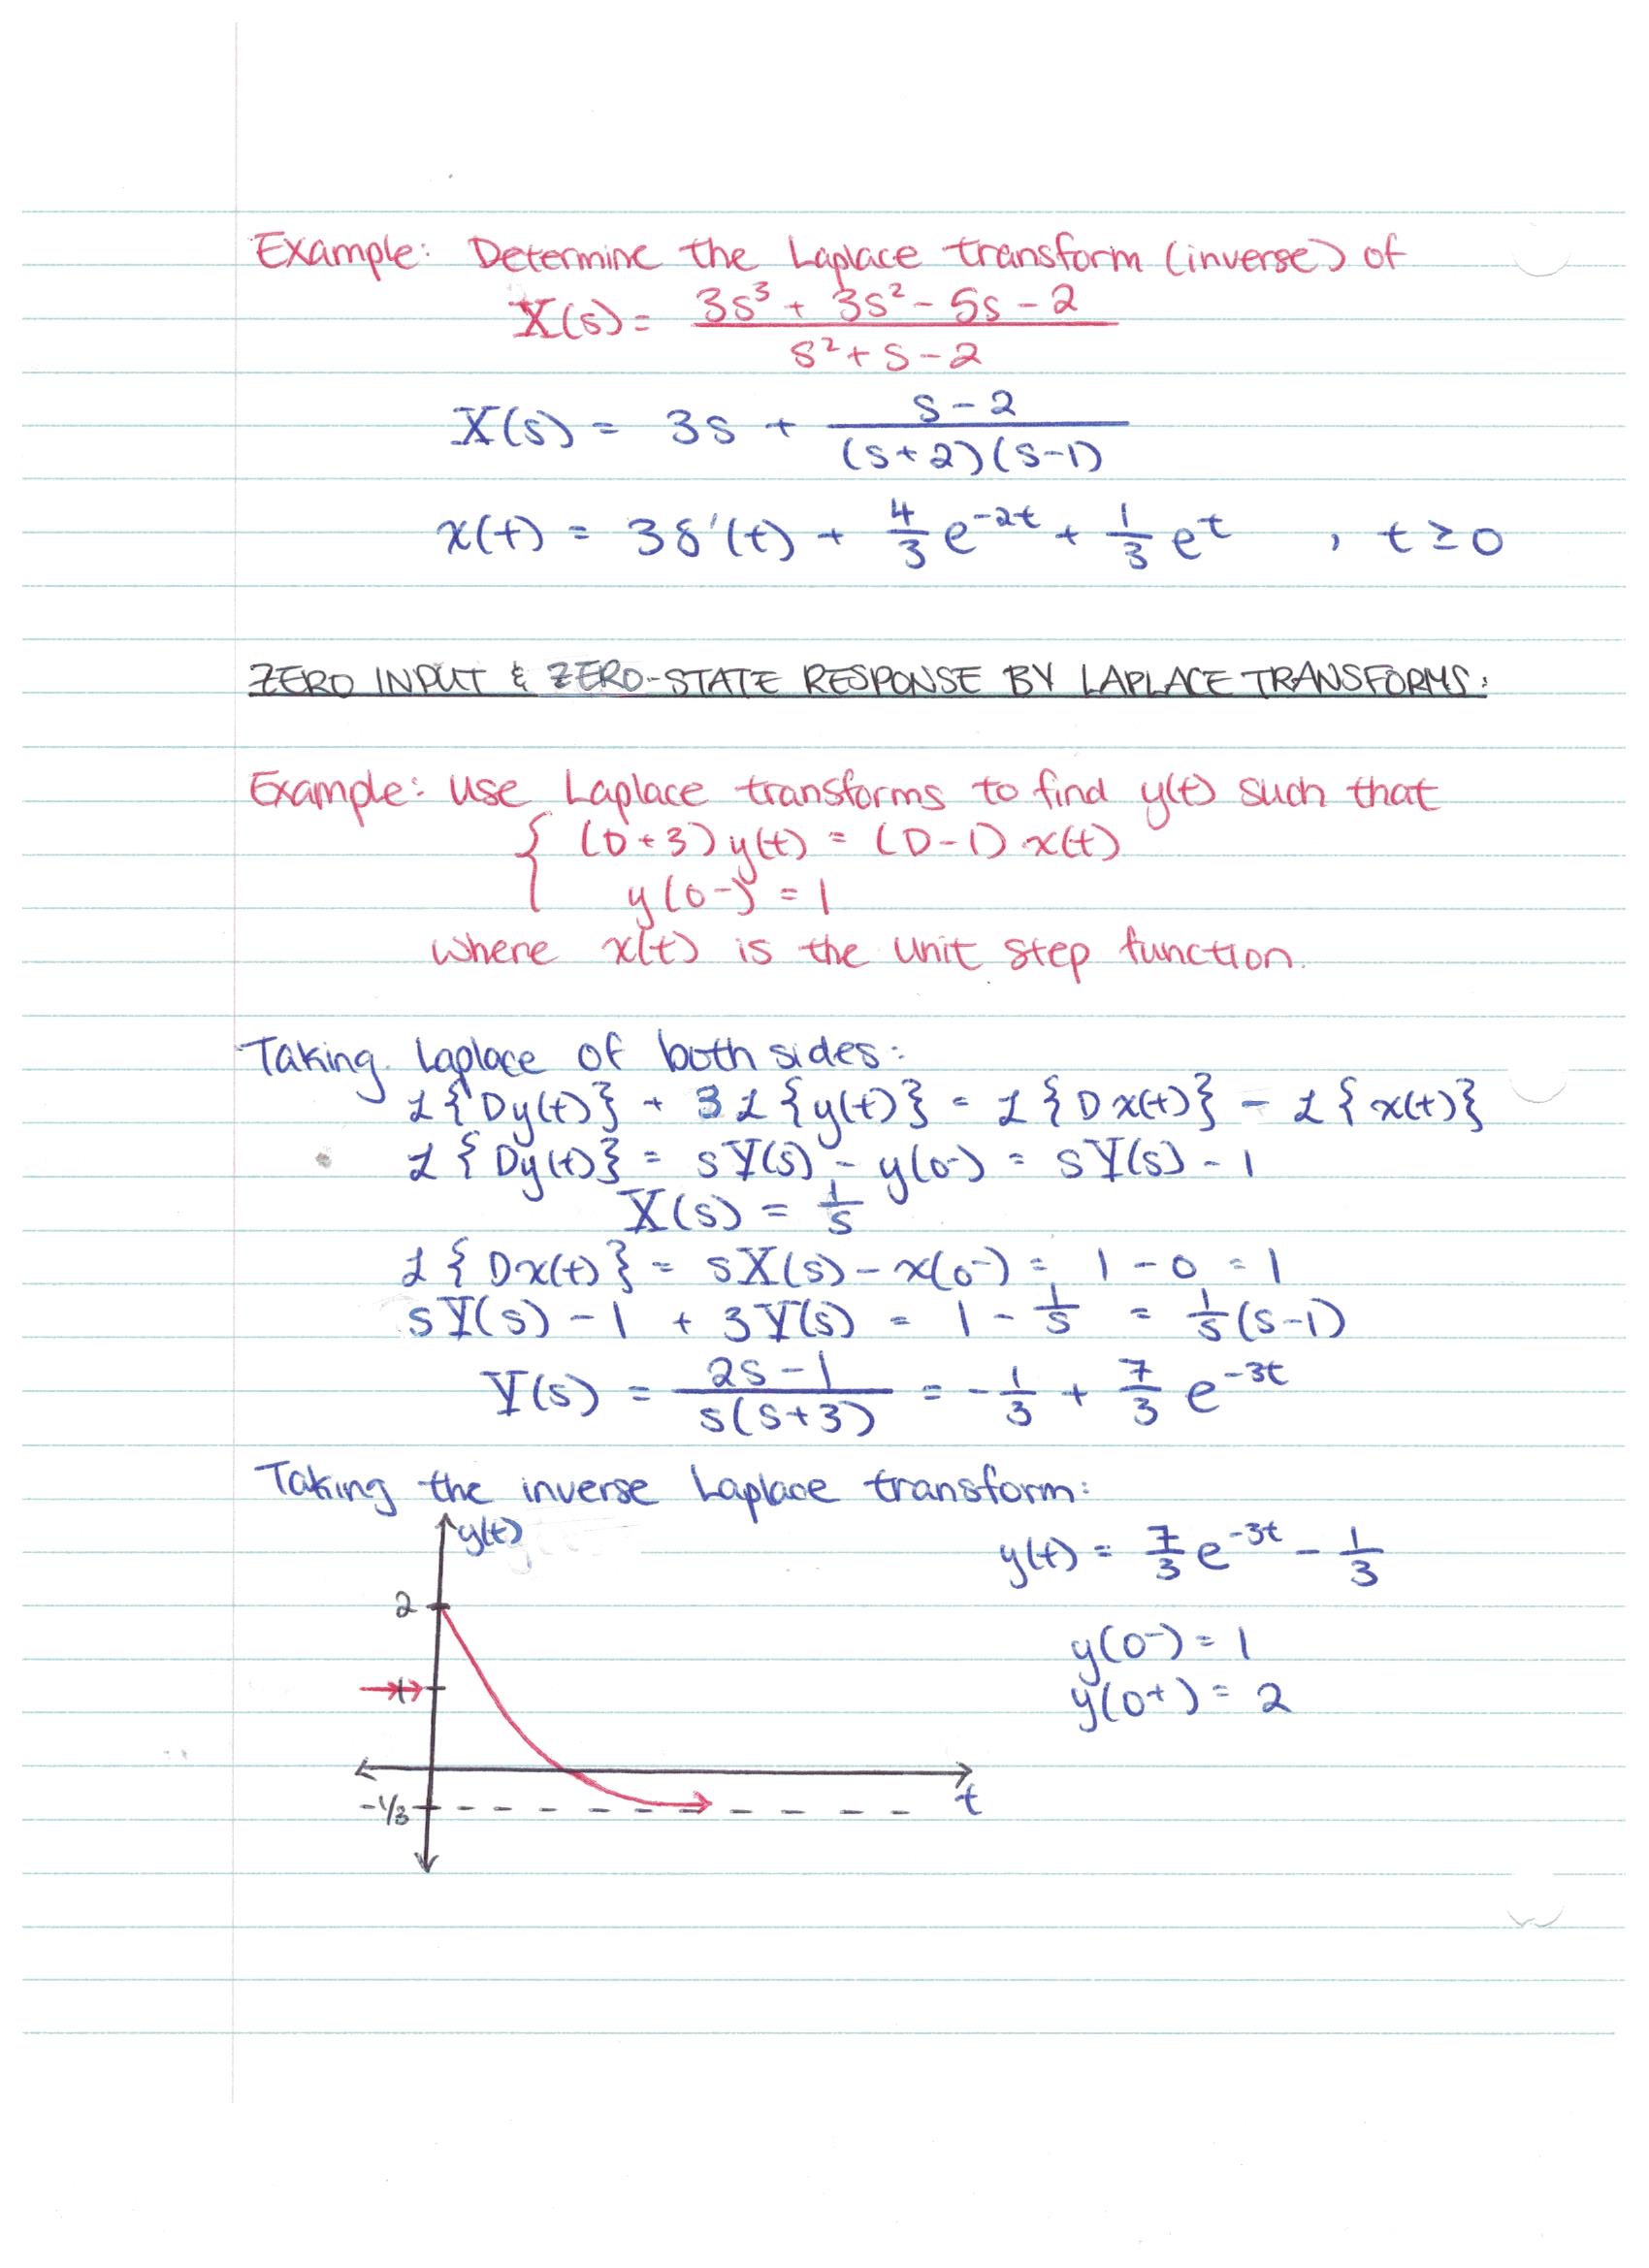 Example: Determine the Laplace transform (inverse) of
X(s) = (3s³ + 3s² - 5s - 2) / (s² + s - 2)
X(s) = 3s + (s - 2) / ((s+2)(s-1))
x(t) = 3δ'(t) + 4/3 e^(-2t) + 1/3 e^t , t ≥ 0
ZERO INPUT & ZERO-STATE RESPONSE BY LAPLACE TRANSFORMS:
Example: Use Laplace transforms to find y(t) such that
{ (D+3) y(t) = (D-1) x(t)
y(0-) = 1
where x(t) is the unit step function.
Taking Laplace of both sides:
ℒ{Dy(t)} + 3ℒ{y(t)} = ℒ{Dx(t)} - ℒ{x(t)}
ℒ{Dy(t)} = sY(s) - y(0-) = sY(s) - 1
X(s) = 1/s
ℒ{Dx(t)} = sX(s) - x(0-) = 1 - 0 = 1
sY(s) - 1 + 3Y(s) = 1 - 1/s = 1/s (s-1)
Y(s) = (2s - 1) / (s(s+3)) = -1/3 + 7/3 e^(-3t)
Taking the inverse Laplace transform:
y(t)
y(t) = 7/3 e^(-3t) - 1/3
2
y(0-) = 1
1
y(0+) = 2
t
-1/3